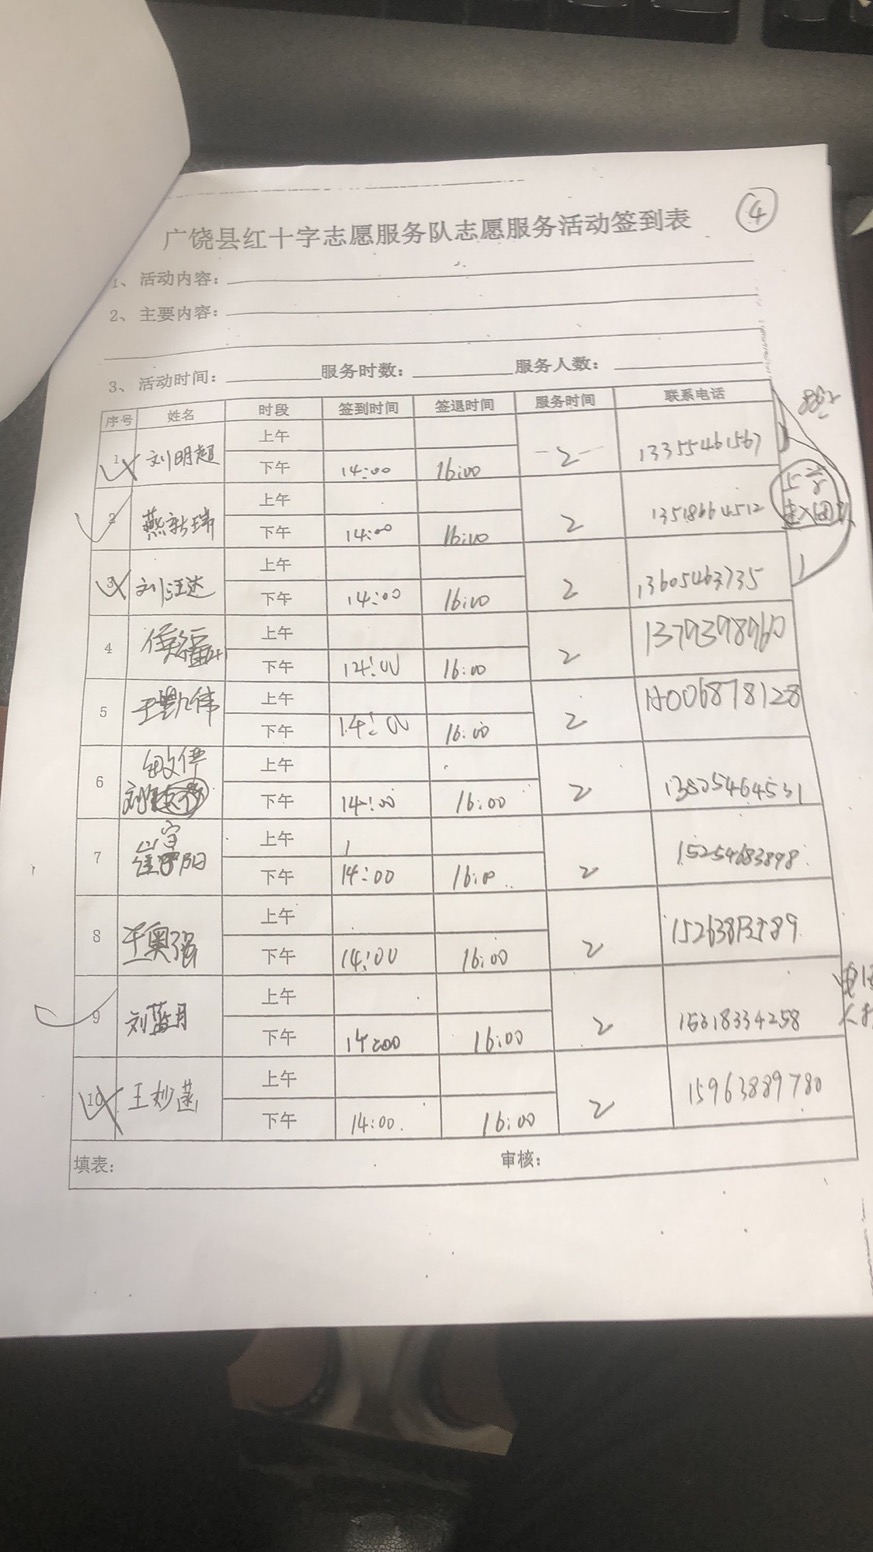 ④
广饶县红十字志愿服务队志愿服务活动签到表
1、活动内容：
2、主要内容：
3、活动时间：服务时数：服务人数：
序号 姓名 时段 签到时间 签退时间 服务时间 联系电话
1 刘明超 上午 2 13355461567
下午 14:00 16:00
2 燕新瑞 上午 2 13518664512
下午 14:00 16:00
3 刘汪达 上午 2 13605463735
下午 14:00 16:00
4 上午 2
下午 14:00 16:00
5 王凯伟 上午 2
下午 14:00 16:00
6 上午 2
下午 14:00 16:00
7 上午 2 15254683898
下午 14:00 16:00
8 王奥强 上午 2
下午 14:00 16:00
9 刘蓝月 上午 2
下午 14:00 16:00
10 王妙菡 上午 2 15963889780
下午 14:00. 16:00
填表： 审核：